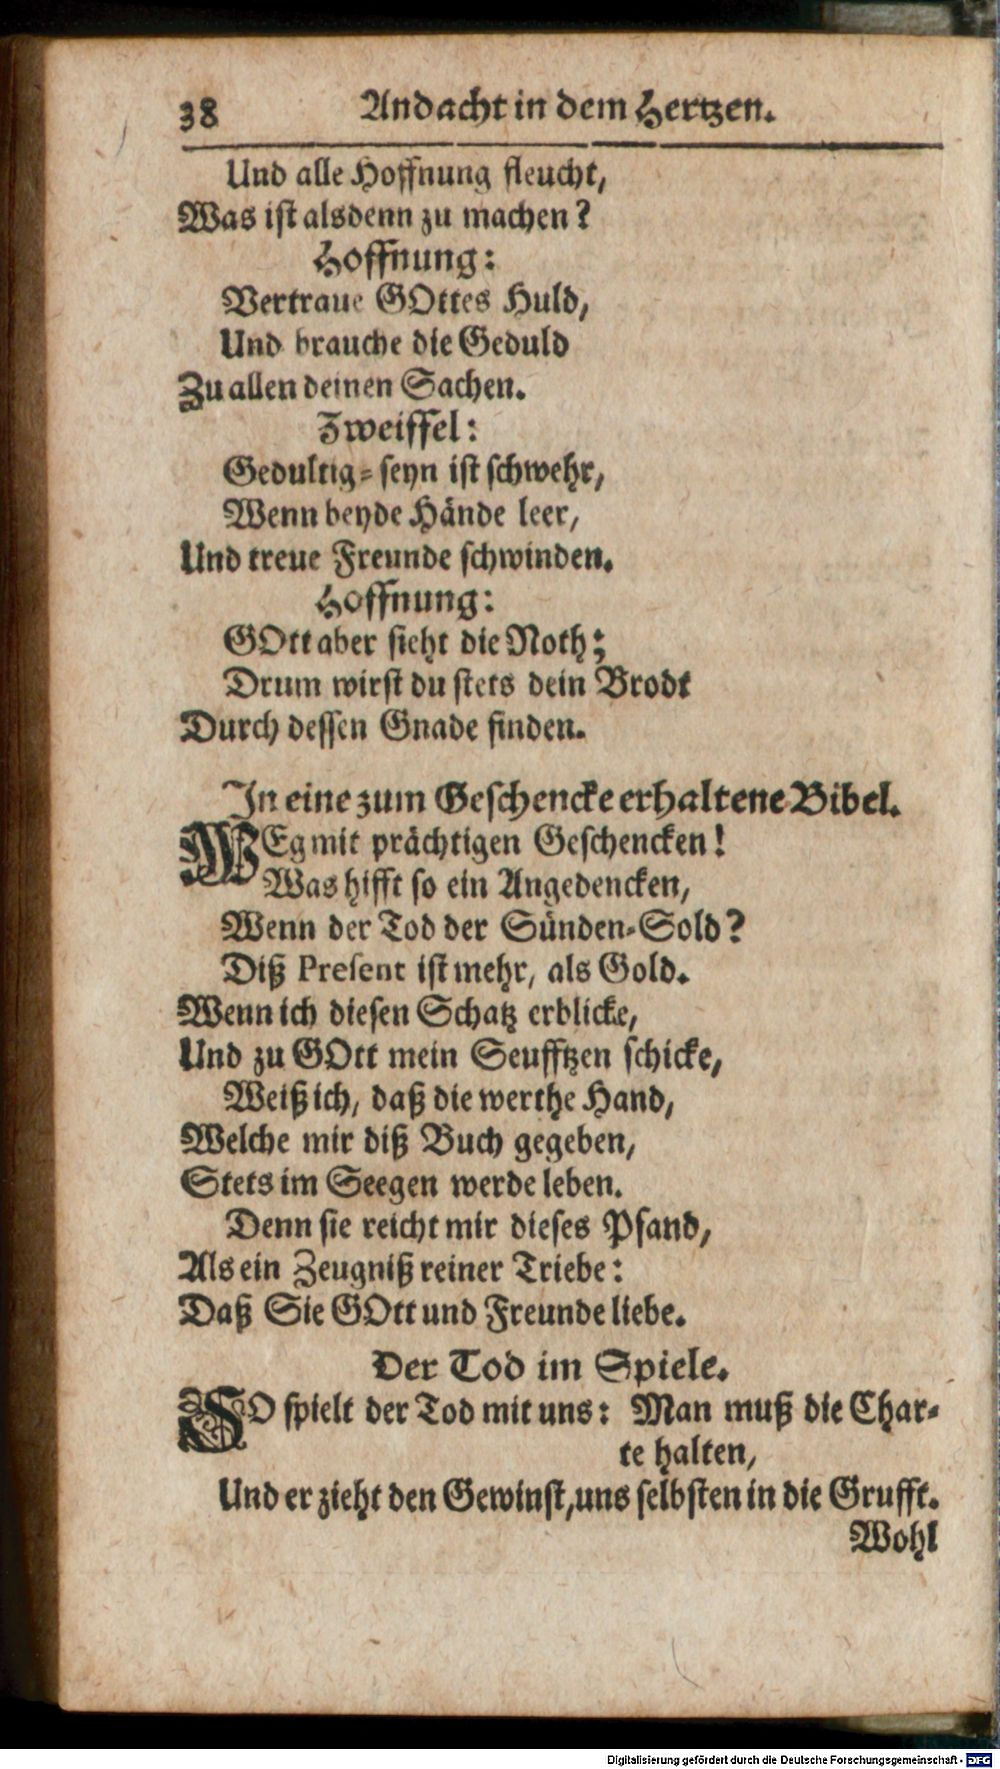 38 Andacht in dem Hertzen.
Und alle Hoffnung fleucht,
Was ist alsdenn zu machen?
Hoffnung:
Vertraue GOttes Huld,
Und brauche die Geduld
Zu allen deinen Sachen.
Zweiffel:
Gedultig-seyn ist schwehr,
Wenn beyde Hände leer,
Und treue Freunde schwinden.
Hoffnung:
GOtt aber sieht die Noth;
Drum wirst du stets dein Brodt
Durch dessen Gnade finden.
In eine zum Geschencke erhaltene Bibel.
WEg mit prächtigen Geschencken!
Was hifft so ein Angedencken,
Wenn der Tod der Sünden-Sold?
Diß Present ist mehr, als Gold.
Wenn ich diesen Schatz erblicke,
Und zu GOtt mein Seufftzen schicke,
Weiß ich, daß die werthe Hand,
Welche mir diß Buch gegeben,
Stets im Seegen werde leben.
Denn sie reicht mir dieses Pfand,
Als ein Zeugniß reiner Triebe:
Daß Sie GOtt und Freunde liebe.
Der Tod im Spiele.
SO spielt der Tod mit uns: Man muß die Char-
te halten,
Und er zieht den Gewinst, uns selbsten in die Grufft.
Wohl
Digitalisierung gefördert durch die Deutsche Forschungsgemeinschaft - DFG